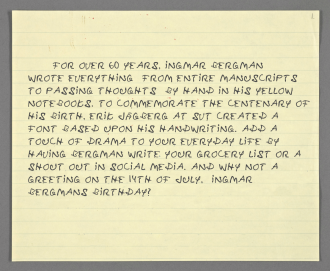 FOR OVER 60 YEARS, INGMAR BERGMAN
WROTE EVERYTHING FROM ENTIRE MANUSCRIPTS
TO PASSING THOUGHTS BY HAND IN HIS YELLOW
NOTEBOOKS. TO COMMEMORATE THE CENTENARY OF
HIS BIRTH, ERIK JAGBERG AT SVT CREATED A
FONT BASED UPON HIS HANDWRITING. ADD A
TOUCH OF DRAMA TO YOUR EVERYDAY LIFE BY
HAVING BERGMAN WRITE YOUR GROCERY LIST OR A
SHOUT OUT IN SOCIAL MEDIA. AND WHY NOT A
GREETING ON THE 14TH OF JULY, INGMAR
BERGMANS BIRTHDAY?